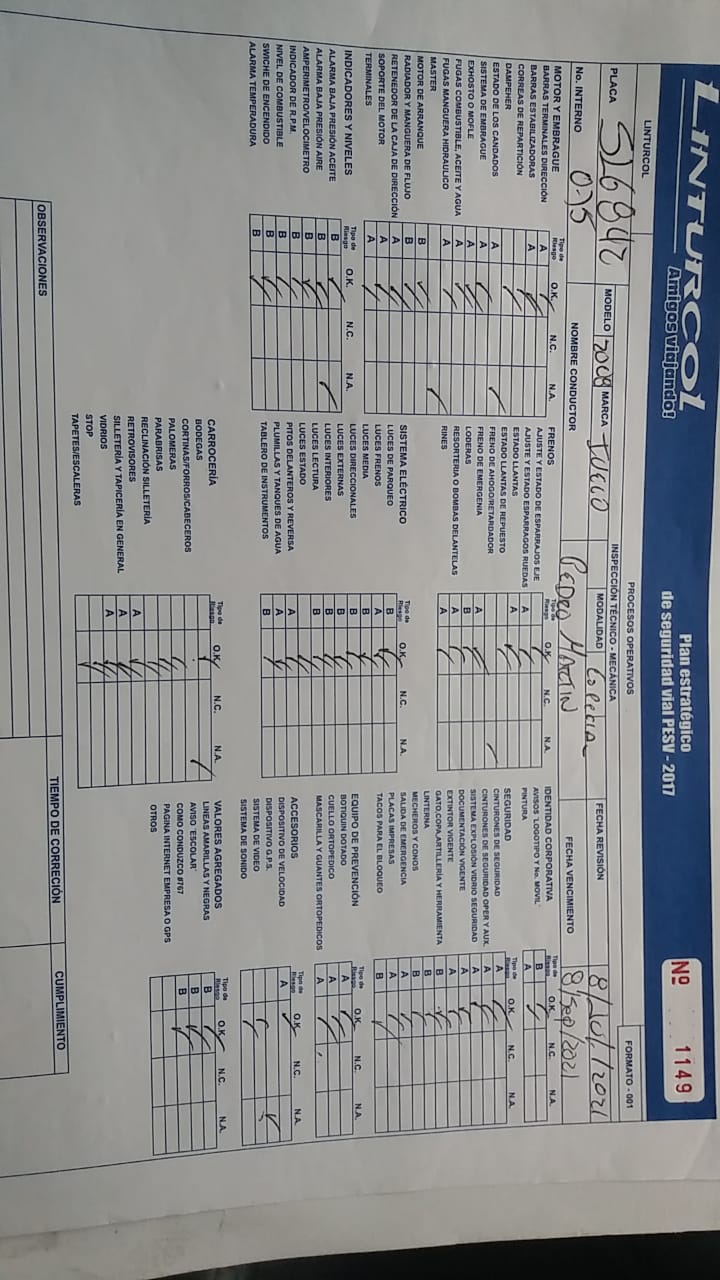 LINTURCOL
Amigos viajando!
Plan estratégico
de seguridad vial PESV - 2017
Nº 1149
LINTURCOL
PROCESOS OPERATIVOS
INSPECCIÓN TÉCNICO - MECÁNICA
FORMATO - 001
PLACA
MODELO 2008 MARCA
MODALIDAD
FECHA REVISIÓN 8/
/2021
No. INTERNO 075
NOMBRE CONDUCTOR PEDRO MARTIN
FECHA VENCIMIENTO 8/Sep/2021
MOTOR Y EMBRAGUE Tipo de Riesgo O.K. N.C. N.A.
BARRAS TERMINALES DIRECCIÓN A
BARRAS ESTABILIZADORAS A
CORREAS DE REPARTICIÓN
DAMPEHER
ESTADO DE LOS CANDADOS A
SISTEMA DE EMBRAGUE A
EXHOSTO O MOFLE A
FUGAS COMBUSTIBLE, ACEITE Y AGUA A
FUGAS MANGUERA HIDRAULICO A
MASTER
MOTOR DE ARRANQUE B
RADIADOR Y MANGUERA DE FLUJO B
RETENEDOR DE LA CAJA DE DIRECCIÓN A
SOPORTE DEL MOTOR A
TERMINALES A
INDICADORES Y NIVELES Tipo de Riesgo O.K. N.C. N.A.
ALARMA BAJA PRESIÓN ACEITE B
ALARMA BAJA PRESIÓN AIRE B
AMPERIMETRO/VELOCIMETRO B
INDICADOR DE R.P.M. B
NIVEL DE COMBUSTIBLE B
SWICHE DE ENCENDIDO B
ALARMA TEMPERATURA B
FRENOS Tipo de Riesgo O.K. N.C. N.A.
AJUSTE Y ESTADO DE ESPARRAJOS EJE
AJUSTE Y ESTADO ESPARRAGOS RUEDAS A
ESTADO LLANTAS A
ESTADO LLANTAS DE REPUESTO
FRENO DE AHOGO/RETARDADOR
FRENO DE EMERGENIA A
LODERAS B
RESORTERIA O BOMBAS DELANTELAS A
RINES A
SISTEMA ELÉCTRICO Tipo de Riesgo O.K. N.C. N.A.
LUCES DE PARQUEO B
LUCES FRENOS A
LUCES MEDIA B
LUCES DIRECCIONALES B
LUCES EXTERNAS B
LUCES INTERIORES B
LUCES LECTURA B
LUCES ESTADO
PITOS DELANTEROS Y REVERSA A
PLUMILLAS Y TANQUES DE AGUA A
TABLERO DE INSTRUMENTOS B
CARROCERÍA Tipo de Riesgo O.K. N.C. N.A.
BODEGAS
CORTINAS/FORROS/CABECEROS
PALOMERAS
PARABRISAS
RECLINACIÓN SILLETERÍA
RETROVISORES A
SILLETERÍA Y TAPICERÍA EN GENERAL A
VIDRIOS A
STOP
TAPETES/ESCALERAS
IDENTIDAD CORPORATIVA Tipo de Riesgo O.K. N.C. N.A.
AVISOS "LOGOTIPO Y No. MOVIL" B
PINTURA A
SEGURIDAD Tipo de Riesgo O.K. N.C. N.A.
CINTURONES DE SEGURIDAD A
CINTURONES DE SEGURIDAD OPER Y AUX. A
SISTEMA EXPLOSIÓN VIDRIO SEGURIDAD A
DOCUMENTACIÓN VIGENTE A
EXTINTOR VIGENTE A
GATO,COPA,ARTILLERÍA Y HERRAMIENTA B
LINTERNA B
MECHEROS Y CONOS B
SALIDA DE EMERGENCIA A
PLACAS IMPRESAS A
TACOS PARA EL BLOQUEO B
EQUIPO DE PREVENCIÓN Tipo de Riesgo O.K. N.C. N.A.
BOTIQUIN DOTADO A
CUELLO ORTOPEDICO A
MASCARILLA Y GUANTES ORTOPEDICOS A
ACCESORIOS Tipo de Riesgo O.K. N.C. N.A.
DISPOSITIVO DE VELOCIDAD A
DISPOSITIVO G.P.S.
SISTEMA DE VIDEO
SISTEMA DE SONIDO
VALORES AGREGADOS Tipo de Riesgo O.K. N.C. N.A.
LINEAS AMARILLAS Y NEGRAS B
AVISO "ESCOLAR" B
COMO CONDUZCO #767 B
PAGINA INTERNET EMPRESA O GPS
OTROS
OBSERVACIONES
TIEMPO DE CORRECIÓN
CUMPLIMIENTO